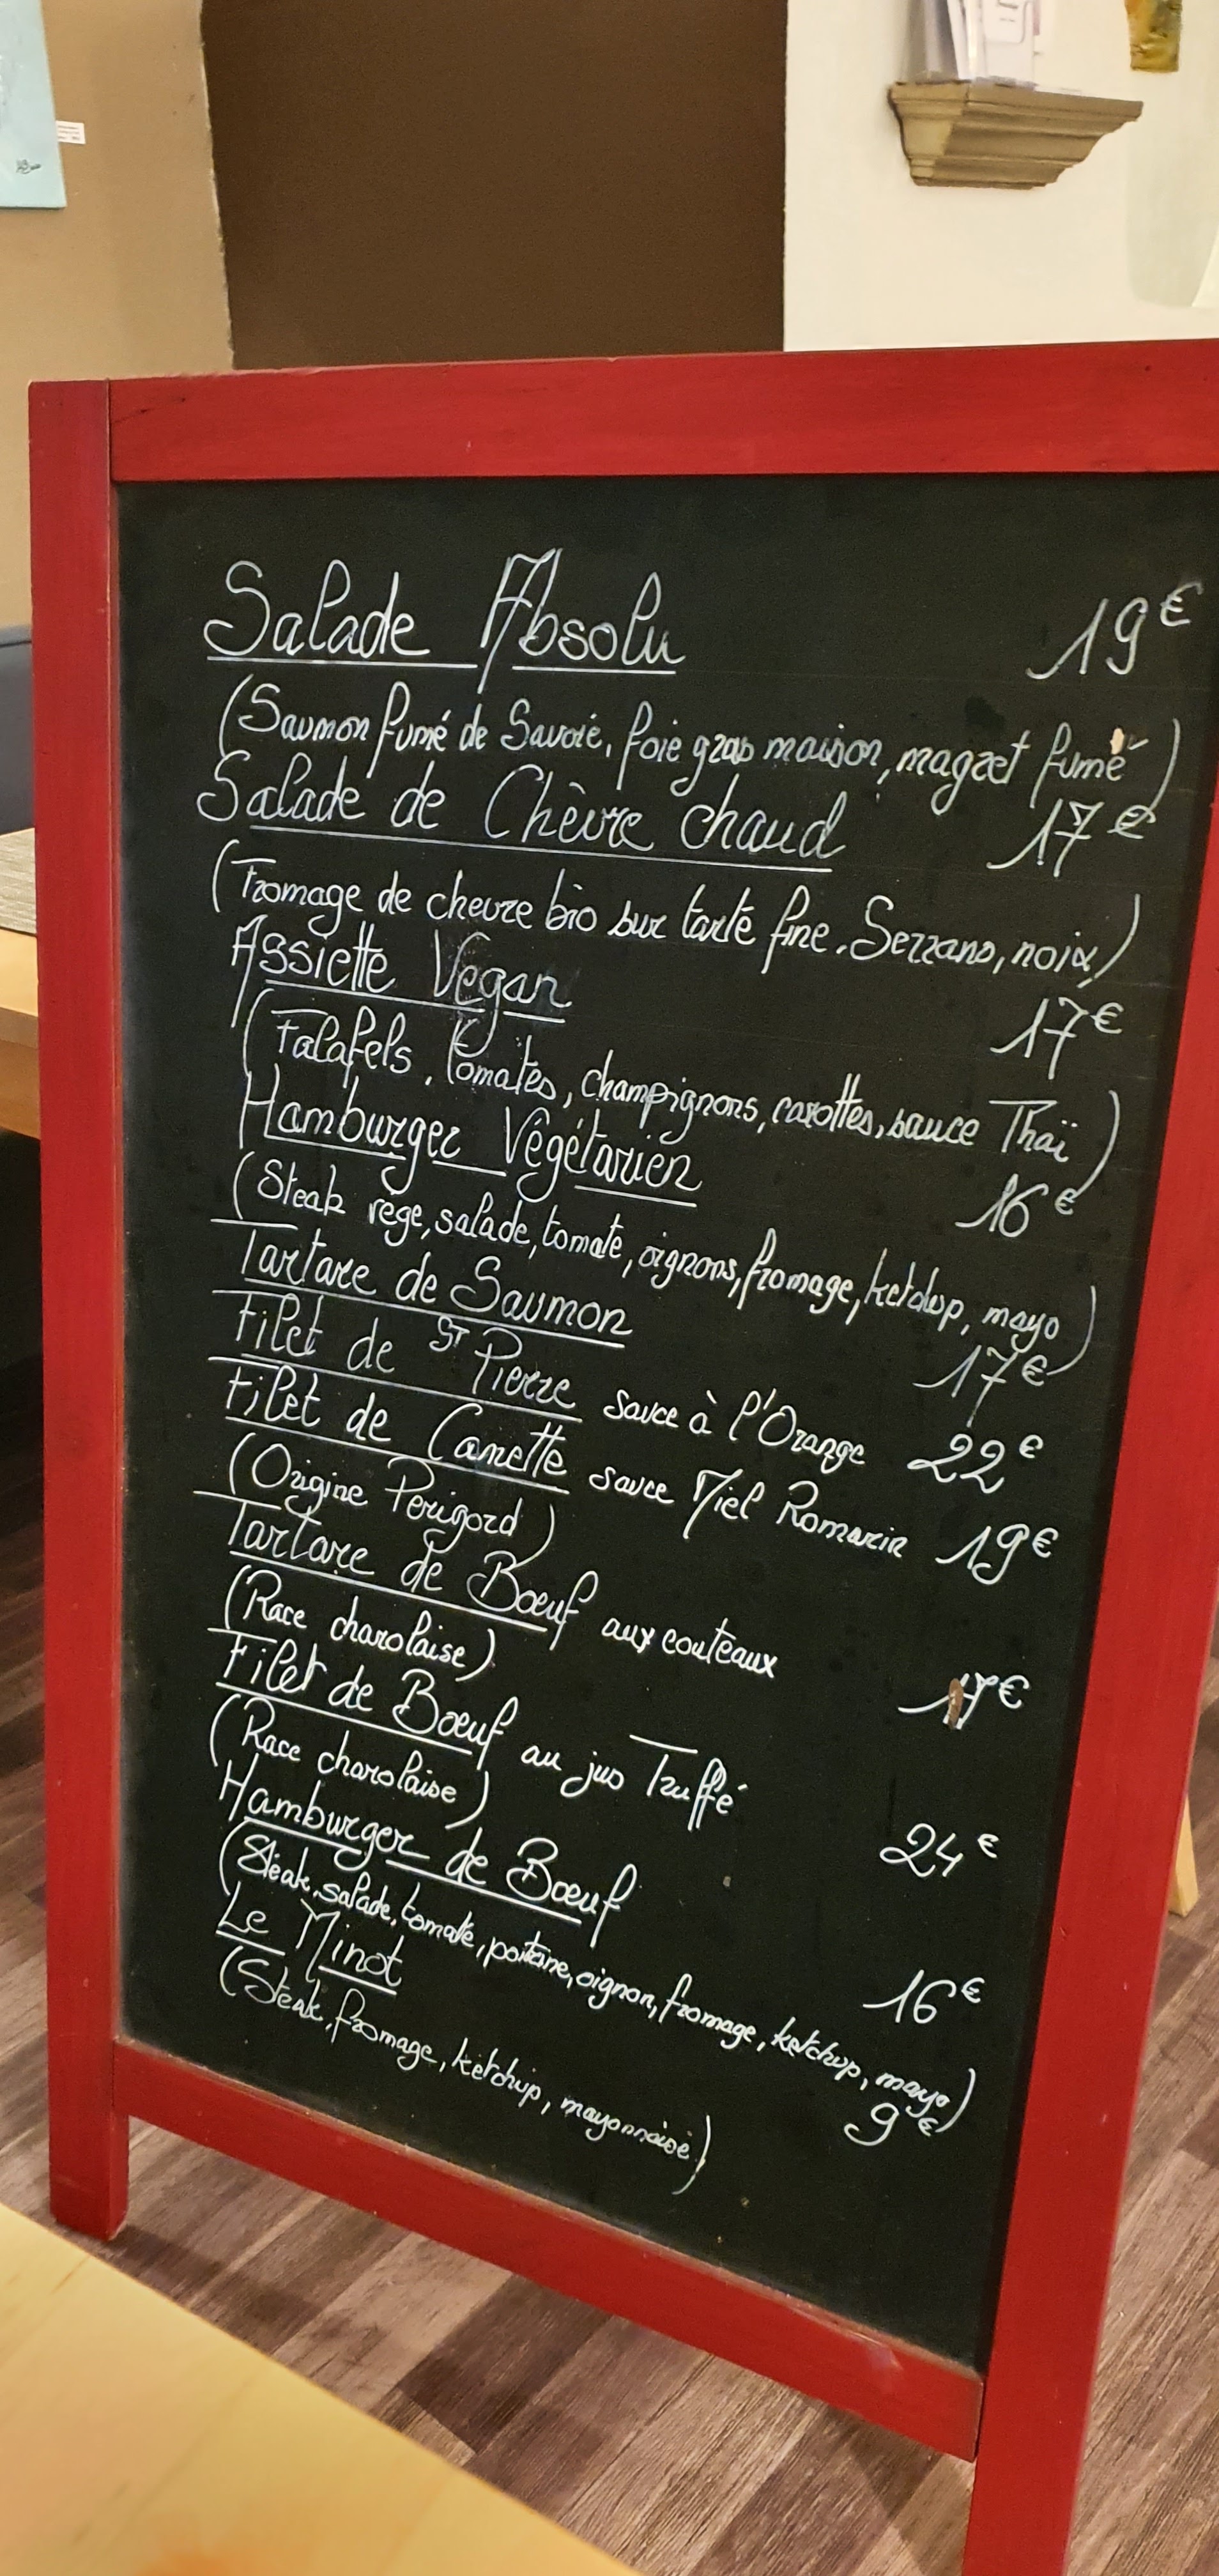 Salade Absolu 19€
(Saumon fumé de Savoie, foie gras maison, magret fumé)
Salade de Chèvre chaud 17€
(Fromage de chevre bio sur tarte fine. Serrano, noix)
Assiette Vegan 17€
(Falafels, tomates, champignons, carottes, sauce Thaï)
Hamburger Végétarien 16€
(Steak vége, salade, tomate, oignons, fromage, ketchup, mayo)
Tartare de Saumon 17€
Filet de ST Pierre sauce à l'Orange 22€
Filet de Canette sauce Miel Romarin 19€
(Origine Perigord)
Tartare de Bœuf aux couteaux 17€
(Race charolaise)
Filet de Bœuf au jus Truffé 24€
(Race charolaise)
Hamburger de Bœuf 16€
(Steak, salade, tomate, poitrine, oignon, fromage, ketchup, mayo)
Le Minot 9€
(Steak, fromage, ketchup, mayonnaise)